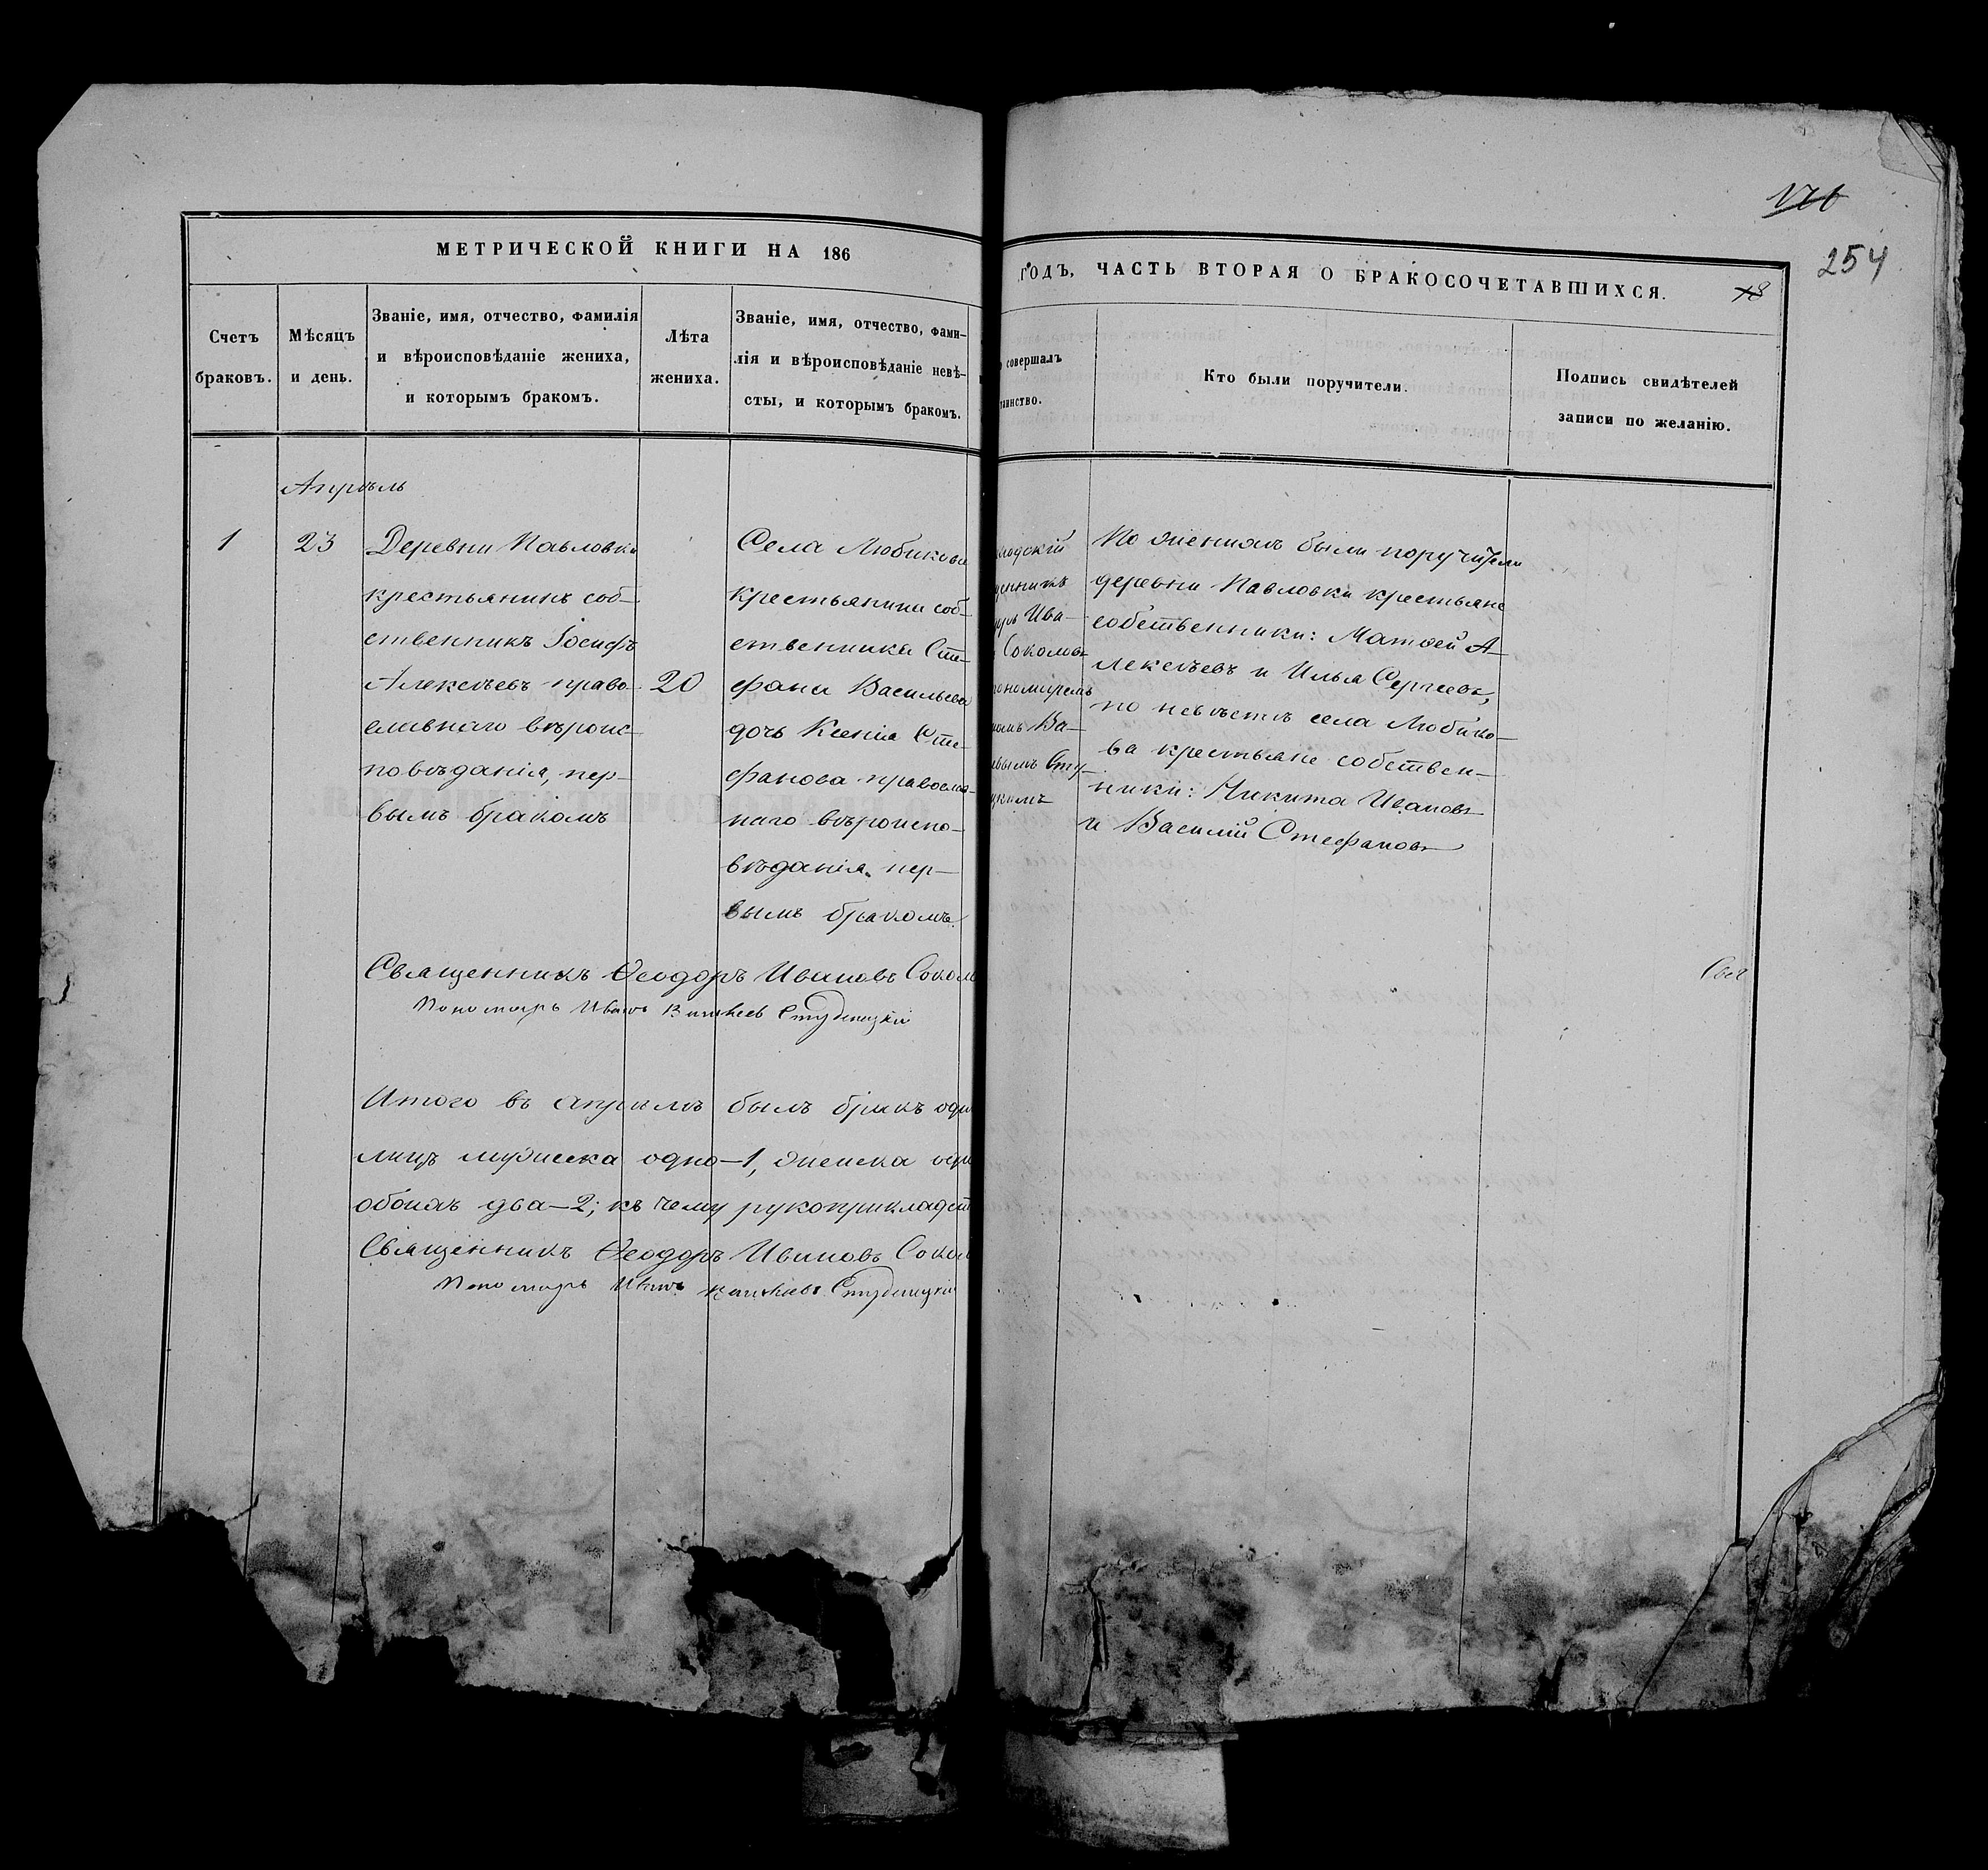 254
МЕТРИЧЕСКОЙ КНИГИ НА 186
ГОДЪ, ЧАСТЬ ВТОРАЯ О БРАКОСОЧЕТАВШИХСЯ.
Счетъ
браковъ.
Мѣсяцъ
и день.
Званіе, имя, отчество, фамилія
и вѣроисповѣданіе жениха,
и которымъ бракомъ.
Лѣта
жениха.
Званіе, имя, отчество, фами-
лія и вѣроисповѣданіе невѣ-
сты, и которымъ бракомъ.
совершалъ
таинство.
Кто были поручители.
Подпись свидѣтелей
записи по желанію.
Апрѣль
1
23
Деревни Павловки
крестьянинъ соб-
ственникъ Іосифъ
Алексѣевъ право-
славнаго вѣроис-
повѣданія, пер-
вымъ бракомъ
20
Села Любикова
крестьянина соб-
ственника Сте-
фана Васильева
дочь Ксенія Сте-
фанова православ-
наго вѣроиспо-
вѣданія, пер-
вымъ бракомъ.
Ива-
Соколовъ
Ва-
Сту-
По женихѣ были поручители
деревни Павловки крестьяне
собственники: Матѳей А-
лексѣевъ и Илья Сергѣевъ,
по невѣстѣ села Любико-
ва крестьяне собствен-
ники: Никита Ивановъ
и Василій Стефановъ
Священникъ Ѳеодоръ Ивановъ Сокол
Пономарь Иванъ Студицкій
Итого въ апрѣлѣ былъ бракъ оди
лицъ мужеска одно–1, женска одн
обоихъ два–2; къ чему рукоприкладст
Священникъ Ѳеодоръ Ивановъ Сокол
Пономарь Иванъ Студицкій